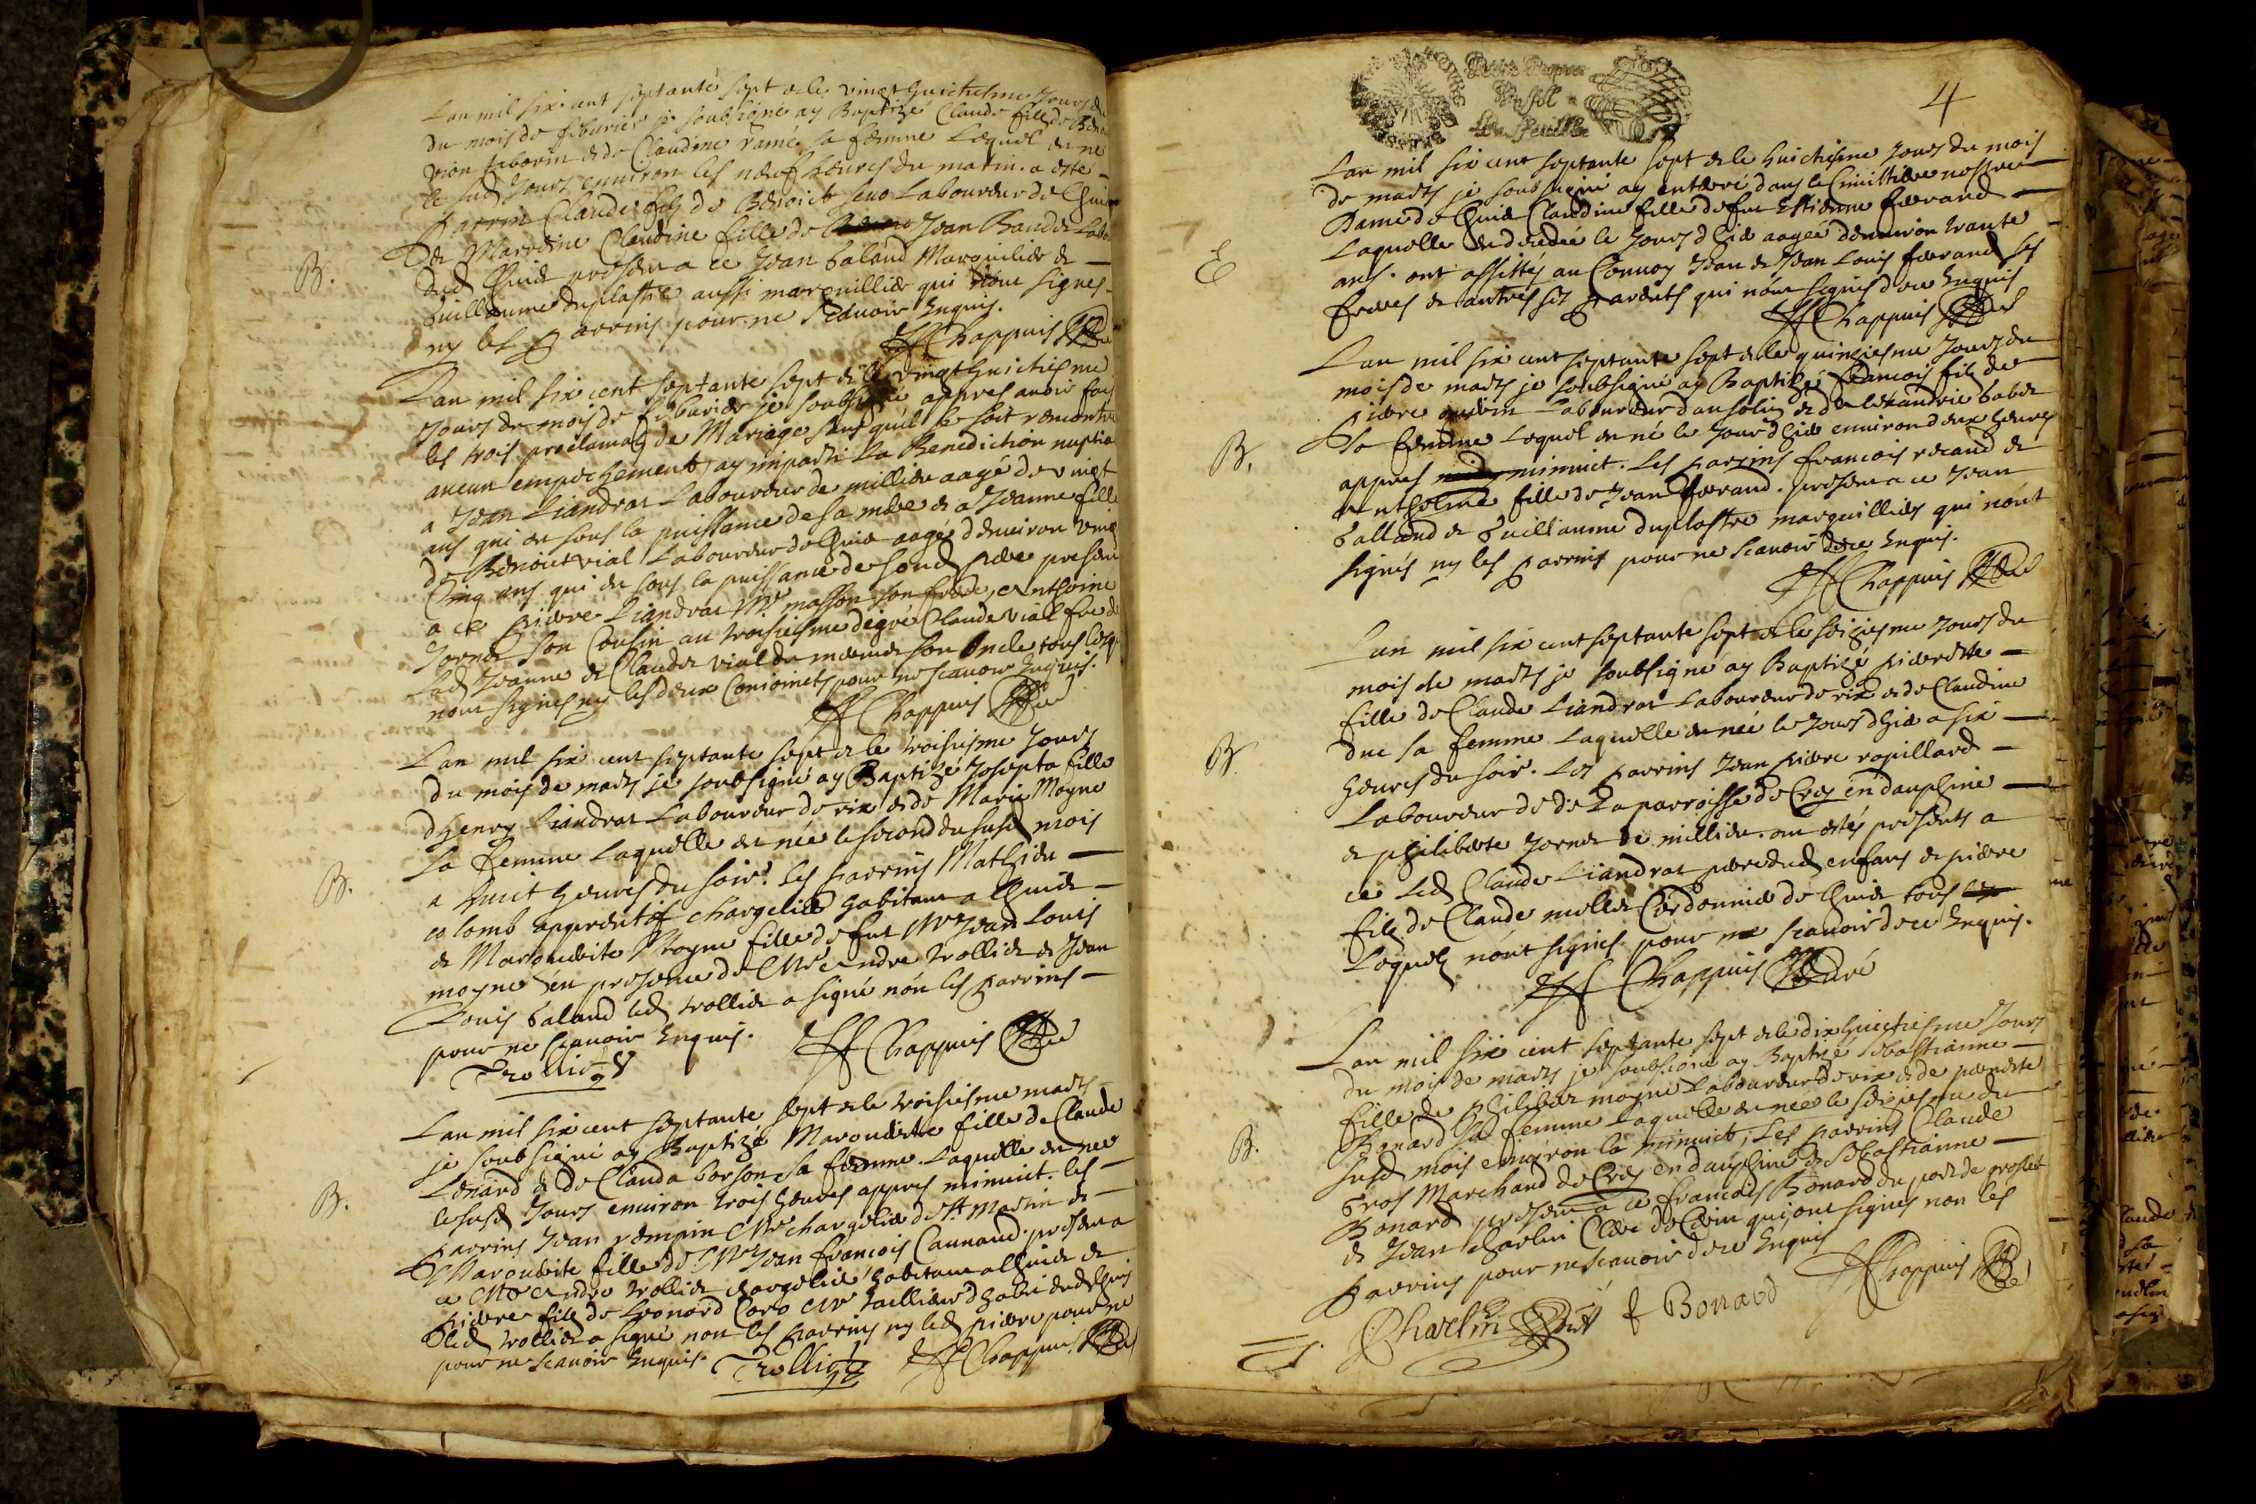 Lan mil six cent septante sept & le vingt huictiesme Jours du
du mois de feburier je soubsigné ay Baptizé Claude fils de
& de Claudine ramé sa femme Lequel est né
le susd Jours environ les neuf heures du matin. a esté
parrin Claude fils de Benoict Laboureur de Chui
& Marreine Claudine fille de Jean Baudet Labo
B.
dud Chuié present a ce Jean baland Marguillier &
Guillaume Duplastre aussi marguillier qui nont signes
ny les parrins pour ne scavoir Enquis.
Chappuis Curé
Lan mil six cent septante sept & le vingt huictiesme
Jours du mois de feburier je soubsigné appres avoir fait
les trois proclamaõs de Mariage sans qu'il se soit rencontré
aucun empechement, ay imparti La Benediction nuptia
a Jean Liandrat Laboureur de millieu aagé de vingt
ans qui est sous la puissance de sa mere & a Jeanne fille
de Benoict vial Laboureur de Chuié aagé denviron vingt
Cinq ans qui est sous la puissance de sond pere present
a ce pierre Liandrat Mre masson son frere, Anthoine
Jornet son Cousin au troisiesme degré Claude vial frere de
Lad Jeanne & Claude vial du mesme son Oncle tous lesq
nont signes ny les deux Conjoincts pour ne scavoir Enquis.
Chappuis Curé
Lan mil six cent septante sept & le troisiesme Jours
du mois de mars je soubsigné ay Baptizé Josepta fille
dhenry Liandrat Laboureur de rix & de Marie Moyne
sa femme Laquelle est née le second du susd mois
B.
a huit heures du soir. les parrins Mathieu
colomb apprentif chargelier habitant a Chuié
& Marguerite Moyne fille de fut Mre Jean Louis
moyne en presence de Mre Andre trollier & Jean
Louis baland led trollier a signé nón les parrins
pour ne scavoir Enquis.
Chappuis Curé
Trollier
Lan mil six cent septante sept & le troisiesme mars
je soubsigné ay Baptizé Marguerite fille de Claude
Lenard & de Clauda borson sa femme. Laquelle est née
B.
le susd Jours environ trois heures appres minuict. les
parrins Jean rempin Mre chargelier de St Martin &
Marguerite fille de Mre Jean francois Cannaud. present a
ce Mre Andre trollier chargelier habitant a Chuié &
pierre fils de Leonard Caro Mre tailleur dhabit dud Chuié
led trollier a signé non les parrins ny led pierre pour ne
pour ne scavoir Enquis. Trollier
Chappuis Curé
4
Lan mil six cent septante sept & le huictiesme Jours du mois
de mars je soubsigné ay enterré dans le Cimittiere nostre
Dame de Chuié Claudine fille de fut Estienne ferrand
Laquelle est decedée le Jours dhier aagée denviron trante
E
ans. ont assistés au Convoy Jean & Jean Louis ferrand ses
freres & autres ses parents qui nont signes de ce Enquis
Chappuis Curé
Lan mil six cent septante sept & le quinziesme Jours du
mois de mars je soubsigné ay Baptizé francois fils de
pierre Laboureur & de
sa femme Lequel est né le Jour dhier environ deux heures
B.
appres minuict. Les parrins francois &
Antholine fille de Jean ferrand. present a ce Jean
balland & Guillaume duplastre marguilliers qui nónt
signés ny les parrins pour ne scavoir de ce Enquis.
Chappuis Curé
Lan mil six cent septante sept & le seiziesme Jours du
mois de mars je soubsigné ay Baptizé pierrette
fille de Claude Liandrat Laboureur de rix & de Claudine
duc sa femme Laquelle est née le Jours dhier a six
B.
heures du soir. Les parrins Jean pierre rapillard
Laboureur de de La parroisse de Creys en dauphiné
& philiberte Jornet de millieu. ont estés presents a
ce Led Claude Liandrat pere dud enfans & pierre
fils de Claude mollet Cordonnier de Chuié tous
Lequels nónt signes pour ne scavoir de ce Enquis.
Chappuis Curé
Lan mil six cent septante sept & le dix huictiesme Jours
du mois de mars je soubsigné ay Baptizé Sebastianne
fille de philibert moyne Laboureur de rix & de pernette
Bonard sa femme Laquelle est née le seiziesme du
susd mois environ la minuict, Les parrins Claude
B.
Gros Marchand de Creys en dauphiné & Sebastianne
Bonard present a ce francois Bonard du port de
& Jean charlin Clerc de qui ont signes non les
parrins pour ne scavoir de ce Enquis
Chappuis Curé
Charlin f Bonard